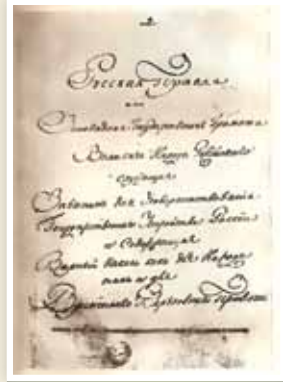 Русская Правда
или
Заповедная Государственная Грамота
Великаго Народа Россійскаго
служащая
для Усовершенствованія
Государственнаго Устройства Россіи
и Содержащая
Наказъ какъ для Народа
такъ и для
Временнаго Верховнаго Правленія